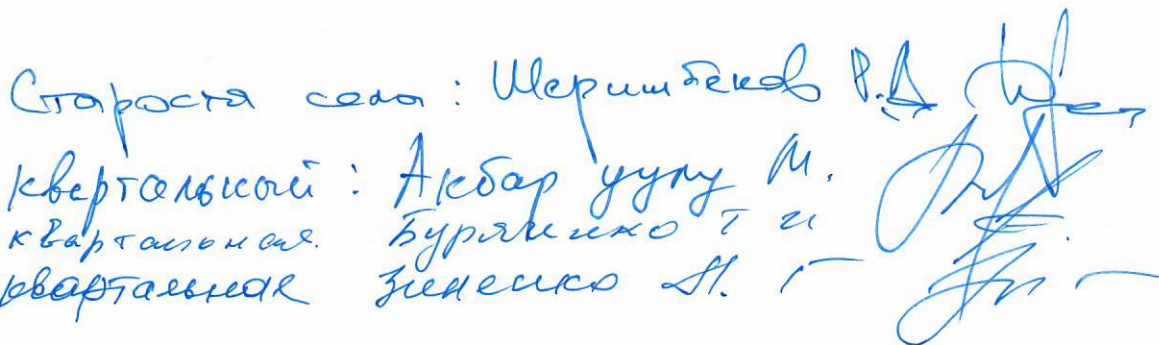 Староста села: Шеримбеков Р.А
квартальный: Акбар уулу М.
квартальная. Буряченко Т И
квартальная Зиненко Л. Г